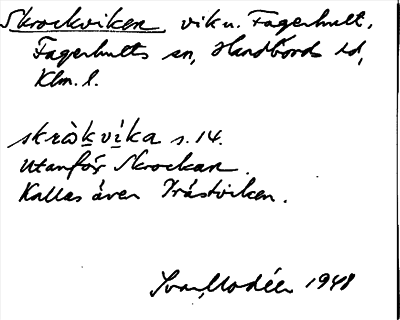 Skrockviken vik u. Fagerhult,
Fagerhults sn, Handbörds hd,
Klm. l.
skrò̀kvíka s. 14.
Utanför Skrockan.
Kallas även Prästviken.
Ivar Modéer 1948